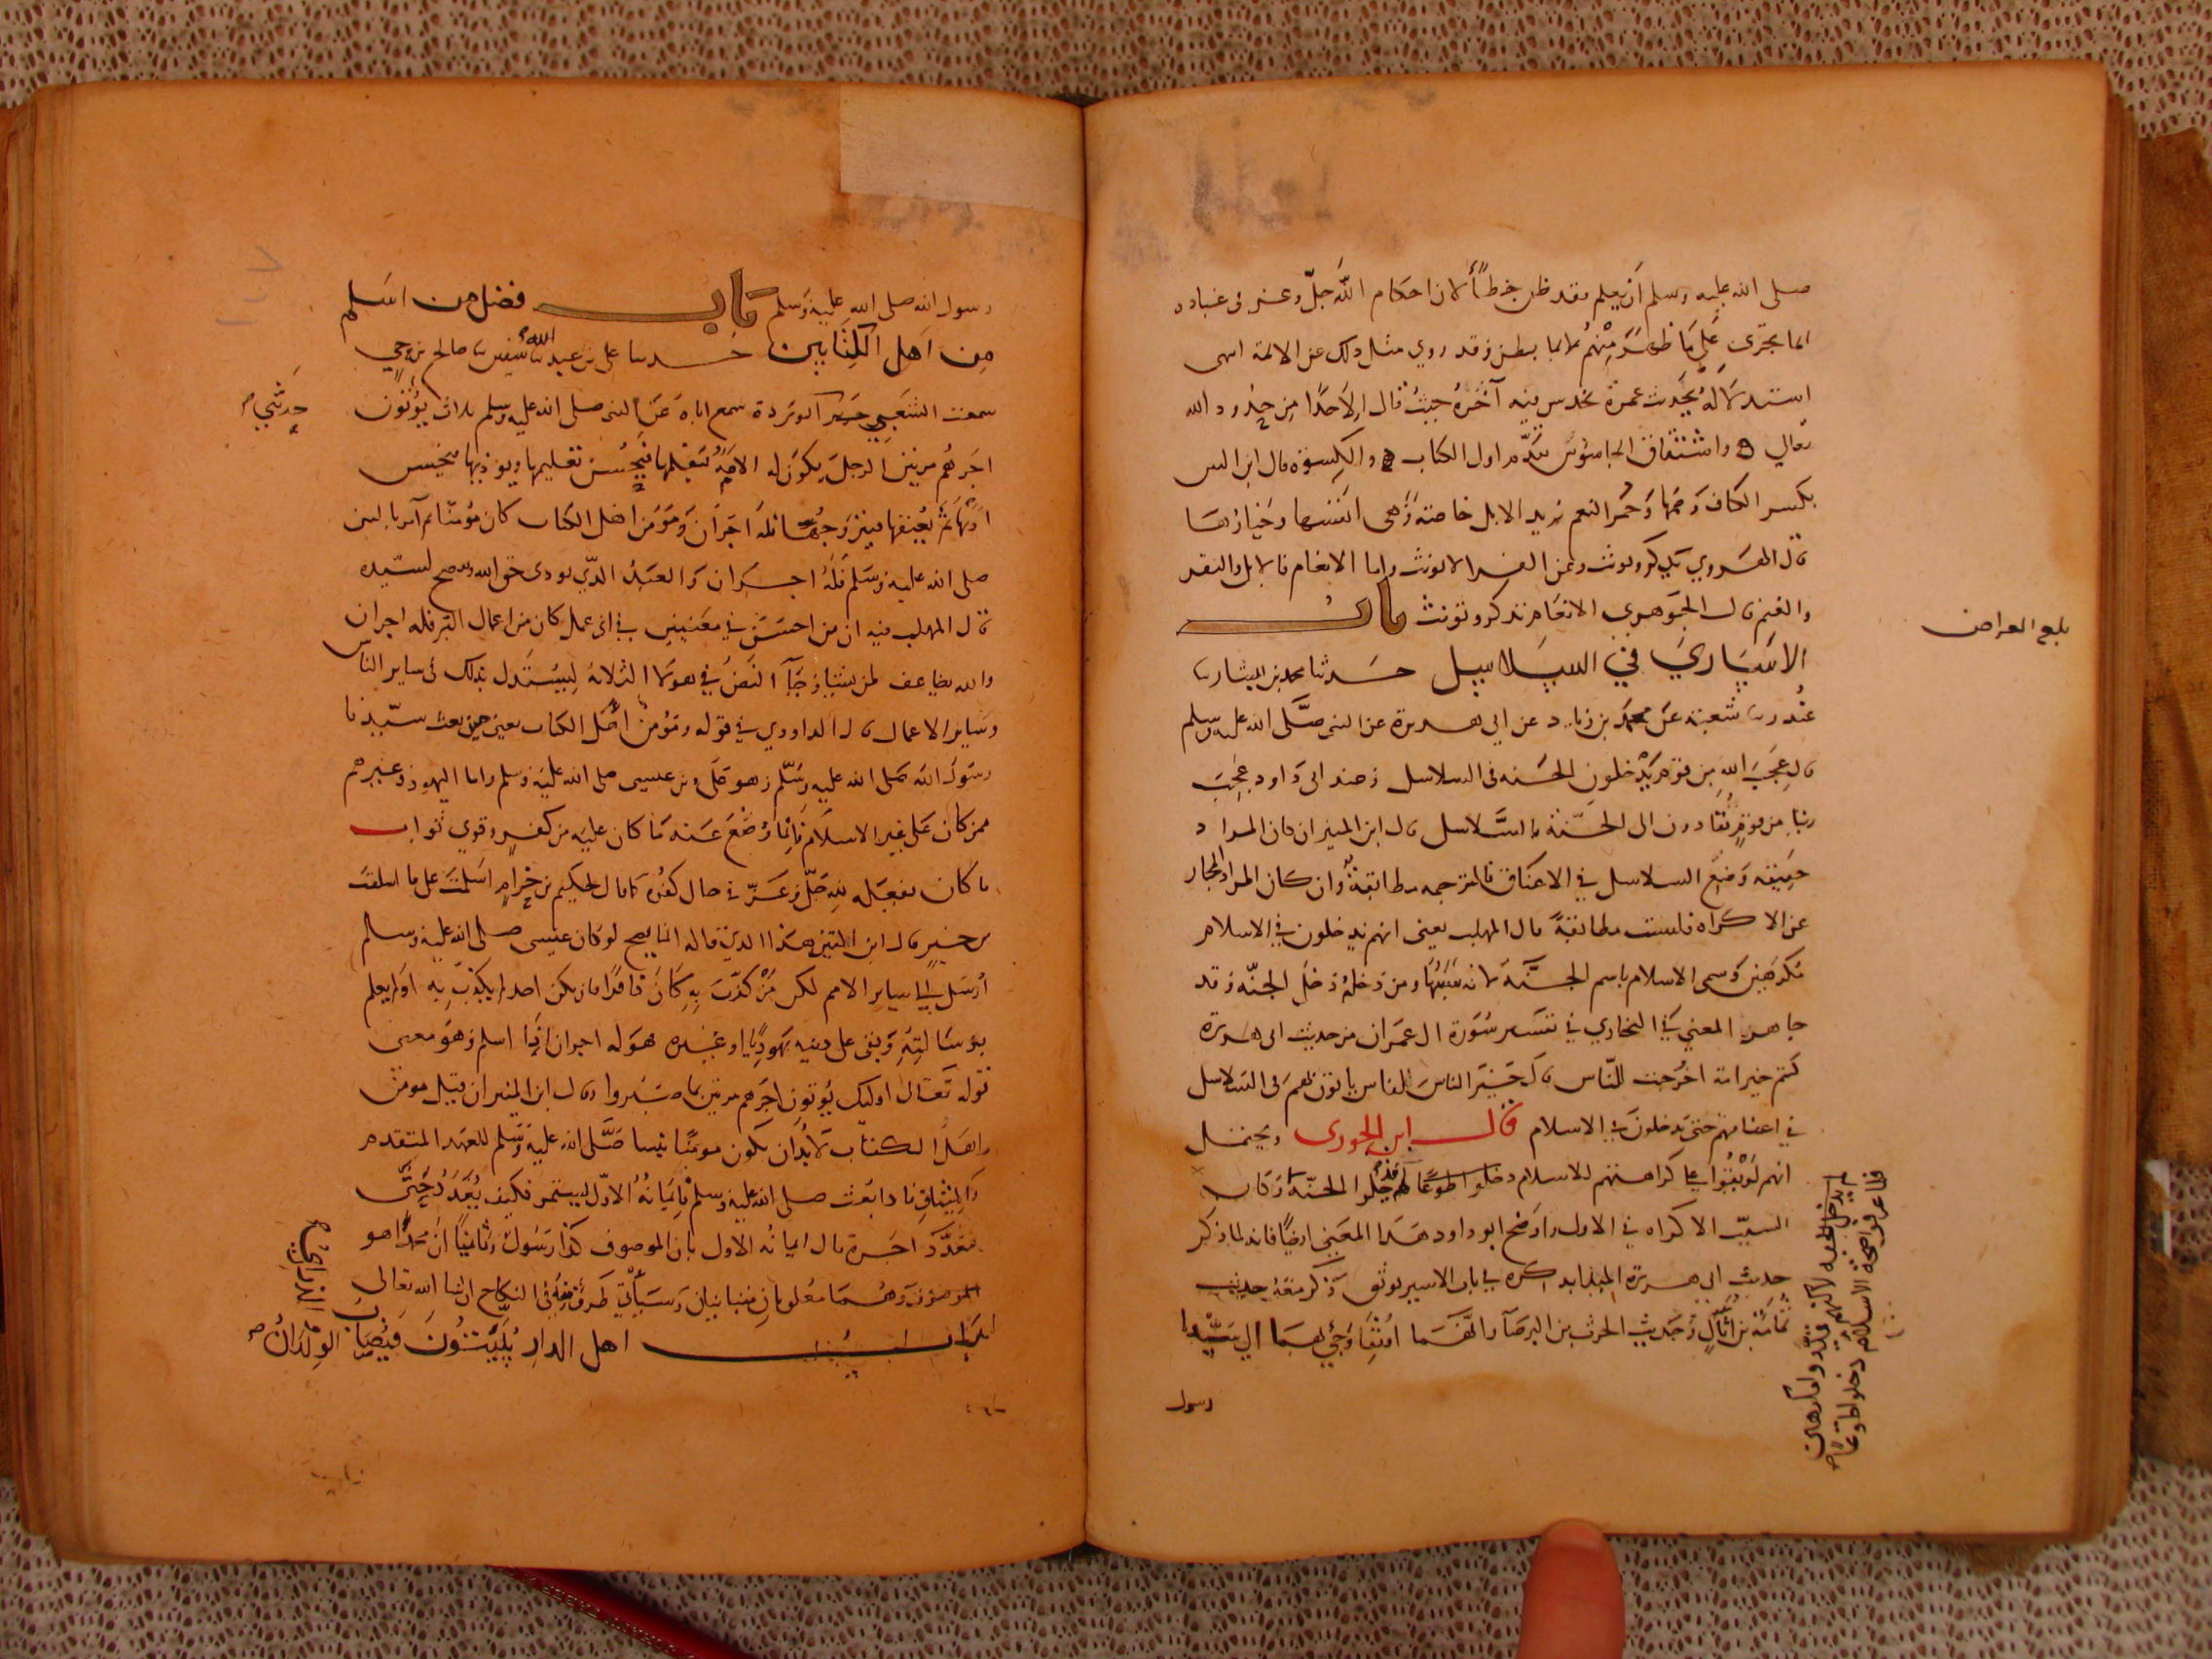 صلى الله عليه وسلم أن يعلم فقد ظن خطأ لان احكام الله جلّ وعز في عباده
انما تجرى على ما ظهر منهم لا بما بطن وقد روي مثل ذلك عن الائمة
استدلاله بحديث عمرة آخره حيث قال الا حدا من حدود الله
تعالى واشتقاق الجاسوس تقدّم اول الكتاب والكسوة قال ابن التين
بكسر الكاف وضمها وحمر النعم يريد الابل خاصة وهي انفسها وخيارها
قال الهروي يذكر ويونث وعن الفراء لا يونث واما الانعام فالابل والبقر
والغنم قال الجوهري الانعام تذكر وتونث باب
الاسارى في السلاسل حدثنا محمد بن بشار نا
غندر نا شعبة عن محمد بن زياد عن ابي هريرة عن النبي صلى الله عليه وسلم
قال عجب الله من قوم يدخلون الجنة في السلاسل وعند ابي داود عجب
ربنا من قوم يقادون الى الجنة بالسلاسل قال ابن المنير ان كان المراد
حقيقة وضع السلاسل في الاعناق فالترجمه مطابقة وان كان المراد المجاز
عن الاكراه فليست مطابقة قال المهلب يعنى انهم يدخلون في الاسلام
مكرهين وسمى الاسلام باسم الجنة لانه سببها ومن دخله دخل الجنة وقد
جا هذا المعنى في البخاري في تفسير سورة ال عمران من حديث ابي هريرة
كنتم خير امة اخرجت للناس قال خير الناس للناس ياتون بهم في السلاسل
في اعناقهم حتى يدخلون في الاسلام قال ابن الجوزى ويحتمل
انهم لو بقوا على كراهتهم للاسلام دخلوا طوعا فدخلوا الجنة وكان
السبب الاكراه في الاول واوضح ابو داود هذا المعنى ايضا فانه لما ذكر
حديث ابي هريرة المبدا بذكره في باب الاسير يوثق ذكر معه حديث
ثمامة بن أثال وحديث الحرث بن البرصاء وانهما اوثقا وجي بهما الى سيدنا
رسول
بلغ العراض
لم يدخلوا الجنه لاكنهم
فلما عرفوا صحة الاسلام دخلوا طوعا
رسول الله صلى الله عليه وسلم باب فضل من اسلم
من اهل الكتابين حدثنا علي بن عبد الله نا سفين نا صالح بن حي
سمعت الشعبي ابو بردة سمع اباه عن النبي صلى الله عليه وسلم ثلاثة يؤتون
حدثني
اجرهم مرتين الرجل يكون له الامة فيعلمها فيحسن تعليمها ويؤدبها فيحسن
ادبها ثم يعتقها فيتزوجها فله اجران ومؤمن اهل الكتاب كان مؤمنا ثم آمن بالنبي
صلى الله عليه وسلم فله اجران والعبد الذي يودى حق الله وينصح لسيده
قال المهلب فيه ان من احسن في معنيين في اى عمل كان من اعمال البر فله اجران
والله يضاعف لمن يشاء وجاء النص في هولاء الثلاثة ليستدل بذلك في ساير الناس
وساير الاعمال قال الداودي في قوله ومؤمن اهل الكتاب يعنى من حين بعث سيدنا
رسول الله صلى الله عليه وسلم وهو على دين عيسى صلى الله عليه وسلم واما اليهود وغيرهم
ممن كان على غير الاسلام فانما وضع عنه ما كان عليه من كفر وقوي ثواب
ما كان يفعله لله جل وعز في حال كفره كما قال لحكيم بن حزام اسلمت على ما اسلفت
من خير قال ابن التين هذا الذي قاله انما يصح لو كان عيسى صلى الله عليه وسلم
أرسل الى ساير الامم لكن من كذب به كان كافرا فان يكن احد لم يكذب به او لم يعلم
برسالته وبقى على دينه يهوديا او غيره هو له اجران اذا اسلم وهو معنى
قوله تعالى اوليك يؤتون اجرهم مرتين بما صبروا وقال ابن المنير ان قيل مومن
اهل الكتاب لا بد ان يكون مومنا بنبينا صلى الله عليه وسلم للعهد المتقدم
والميثاق فاذا بعث صلى الله عليه وسلم فايمانه الاول يستمر فكيف يعدد حتى
يتعدد اجره قال ايمانه الاول بان الموصوف كذا رسول وثانيا ان محمدا هو
الموصوف وهما معلومان متباينان وسيأتي طرف منه في النكاح ان شا الله تعالى
باب اهل الدار يبيتون فيصاب الولدان
والذراري